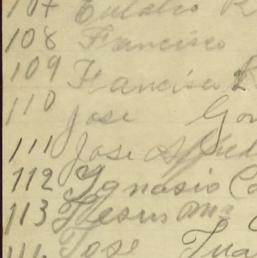 107 Eulalio R
108 Francisco
109 Francisca R
110 Jose Gon
111 Jose A
112 Ygnasio Co
113 Jesus Ma
Jose Jua